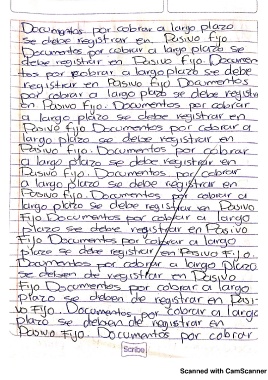 Documentos por cobrar a largo plazo
se debe registrar en Pasivo fijo
Documentos por cobrar a largo plazo se
debe registrar en Pasivo Fijo. Documen
tos por cobrar a largo plazo se debe
registrar en Pasivo Fijo Documentos
por cobrar a largo plazo se debe registrar
en Pasivo Fijo. Documentos por cobrar
a largo plazo se debe registrar en
Pasivo fijo Documentos por cobrar a
largo plazo se debe registrar en
Pasivo Fijo. Documentos por cobrar
a largo plazo se debe registrar en
Pasivo Fijo. Documentos por cobrar
a largo plazo se debe registrar en
Pasivo Fijo. Documentos por cobrar a
largo plazo se debe registrar en Pasivo
Fijo Documentos por cobrar a largo
plazo se debe registrar en Pasivo
Fijo Documentos por cobrar a largo
plazo se debe registrar en Pasivo Fijo.
Documentos por cobrar a largo plazo
se deben de registrar en Pasivo
Fijo Documentos por cobrar a largo
plazo se deben de registrar en Pasi-
vo Fijo. Documentos por cobrar a largo
plazo se deben de registrar en
Pasivo Fijo. Documentos por cobrar
Scribe
Scanned with CamScanner